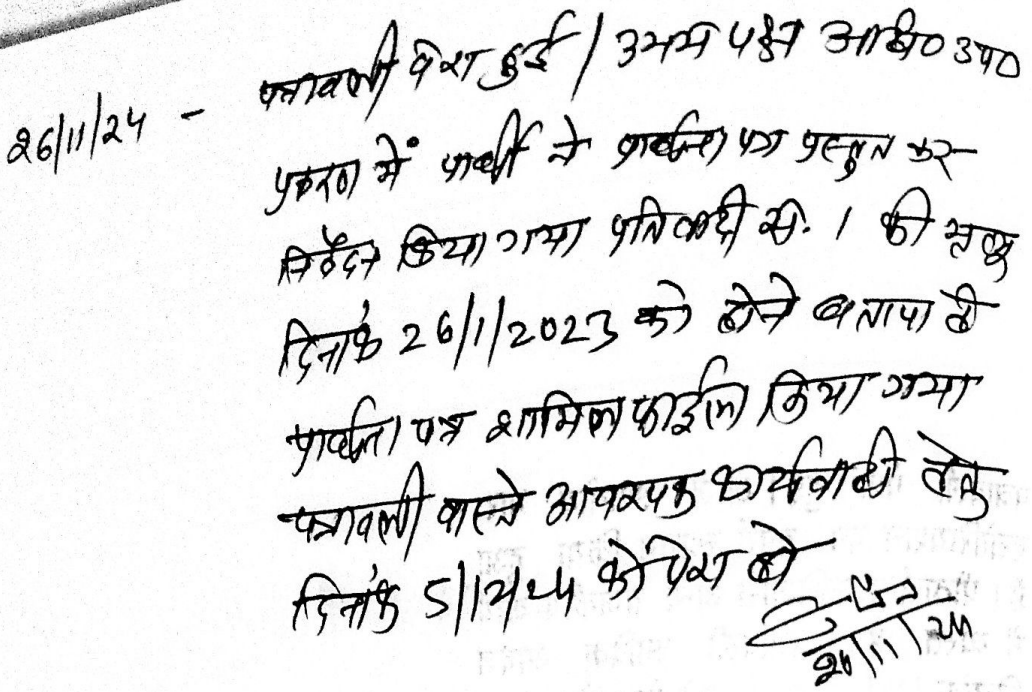 26/11/24 - पत्रावली पेश हुई / उभय पक्ष अधि० उप०
प्रकरण में प्रार्थी ने प्रार्थना पत्र प्रस्तुत कर
निवेदन किया गया प्रतिवादी सं. 1 की मृत्यु
दिनांक 26/1/2023 को होने बताया है
प्रार्थना पत्र शामिल फाईल किया गया
पत्रावली वास्ते आवश्यक कार्यवाही हेतु
दिनांक 5/12/24 को पेश हो
26/11/24